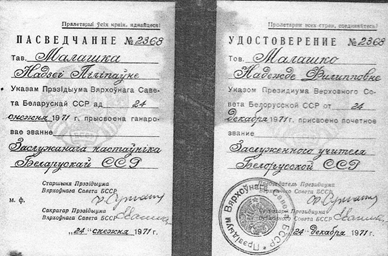 Пралетарыі ўсіх краін, яднайцеся!
ПАСВЕДЧАННЕ № 2368
Тав. Малашка
Надзеі Піліпаўне
Указам Прэзідыума Вярхоўнага Саве-
та Беларускай ССР ад 24
снежня 1971 г. прысвоена ганаро-
вае званне
Заслужанага настаўніка
Беларускай ССР
Старшыня Прэзідыума
Вярхоўнага Савета БССР
м. ф.
Сакратар Прэзідыума
Вярхоўнага Савета БССР
„24" снежня 1971 г.
Пролетарии всех стран, соединяйтесь!
УДОСТОВЕРЕНИЕ № 2368
Тов. Малашко
Надежде Филипповне
Указом Президиума Верховного Сове-
та Белорусской ССР от 24
декабря 1971 г. присвоено почетное
звание
Заслуженного учителя
Белорусской ССР
Председатель Президиума
Верховного Совета БССР
Президиума
Верховного Совета БССР
„24" декабря 1971 г.